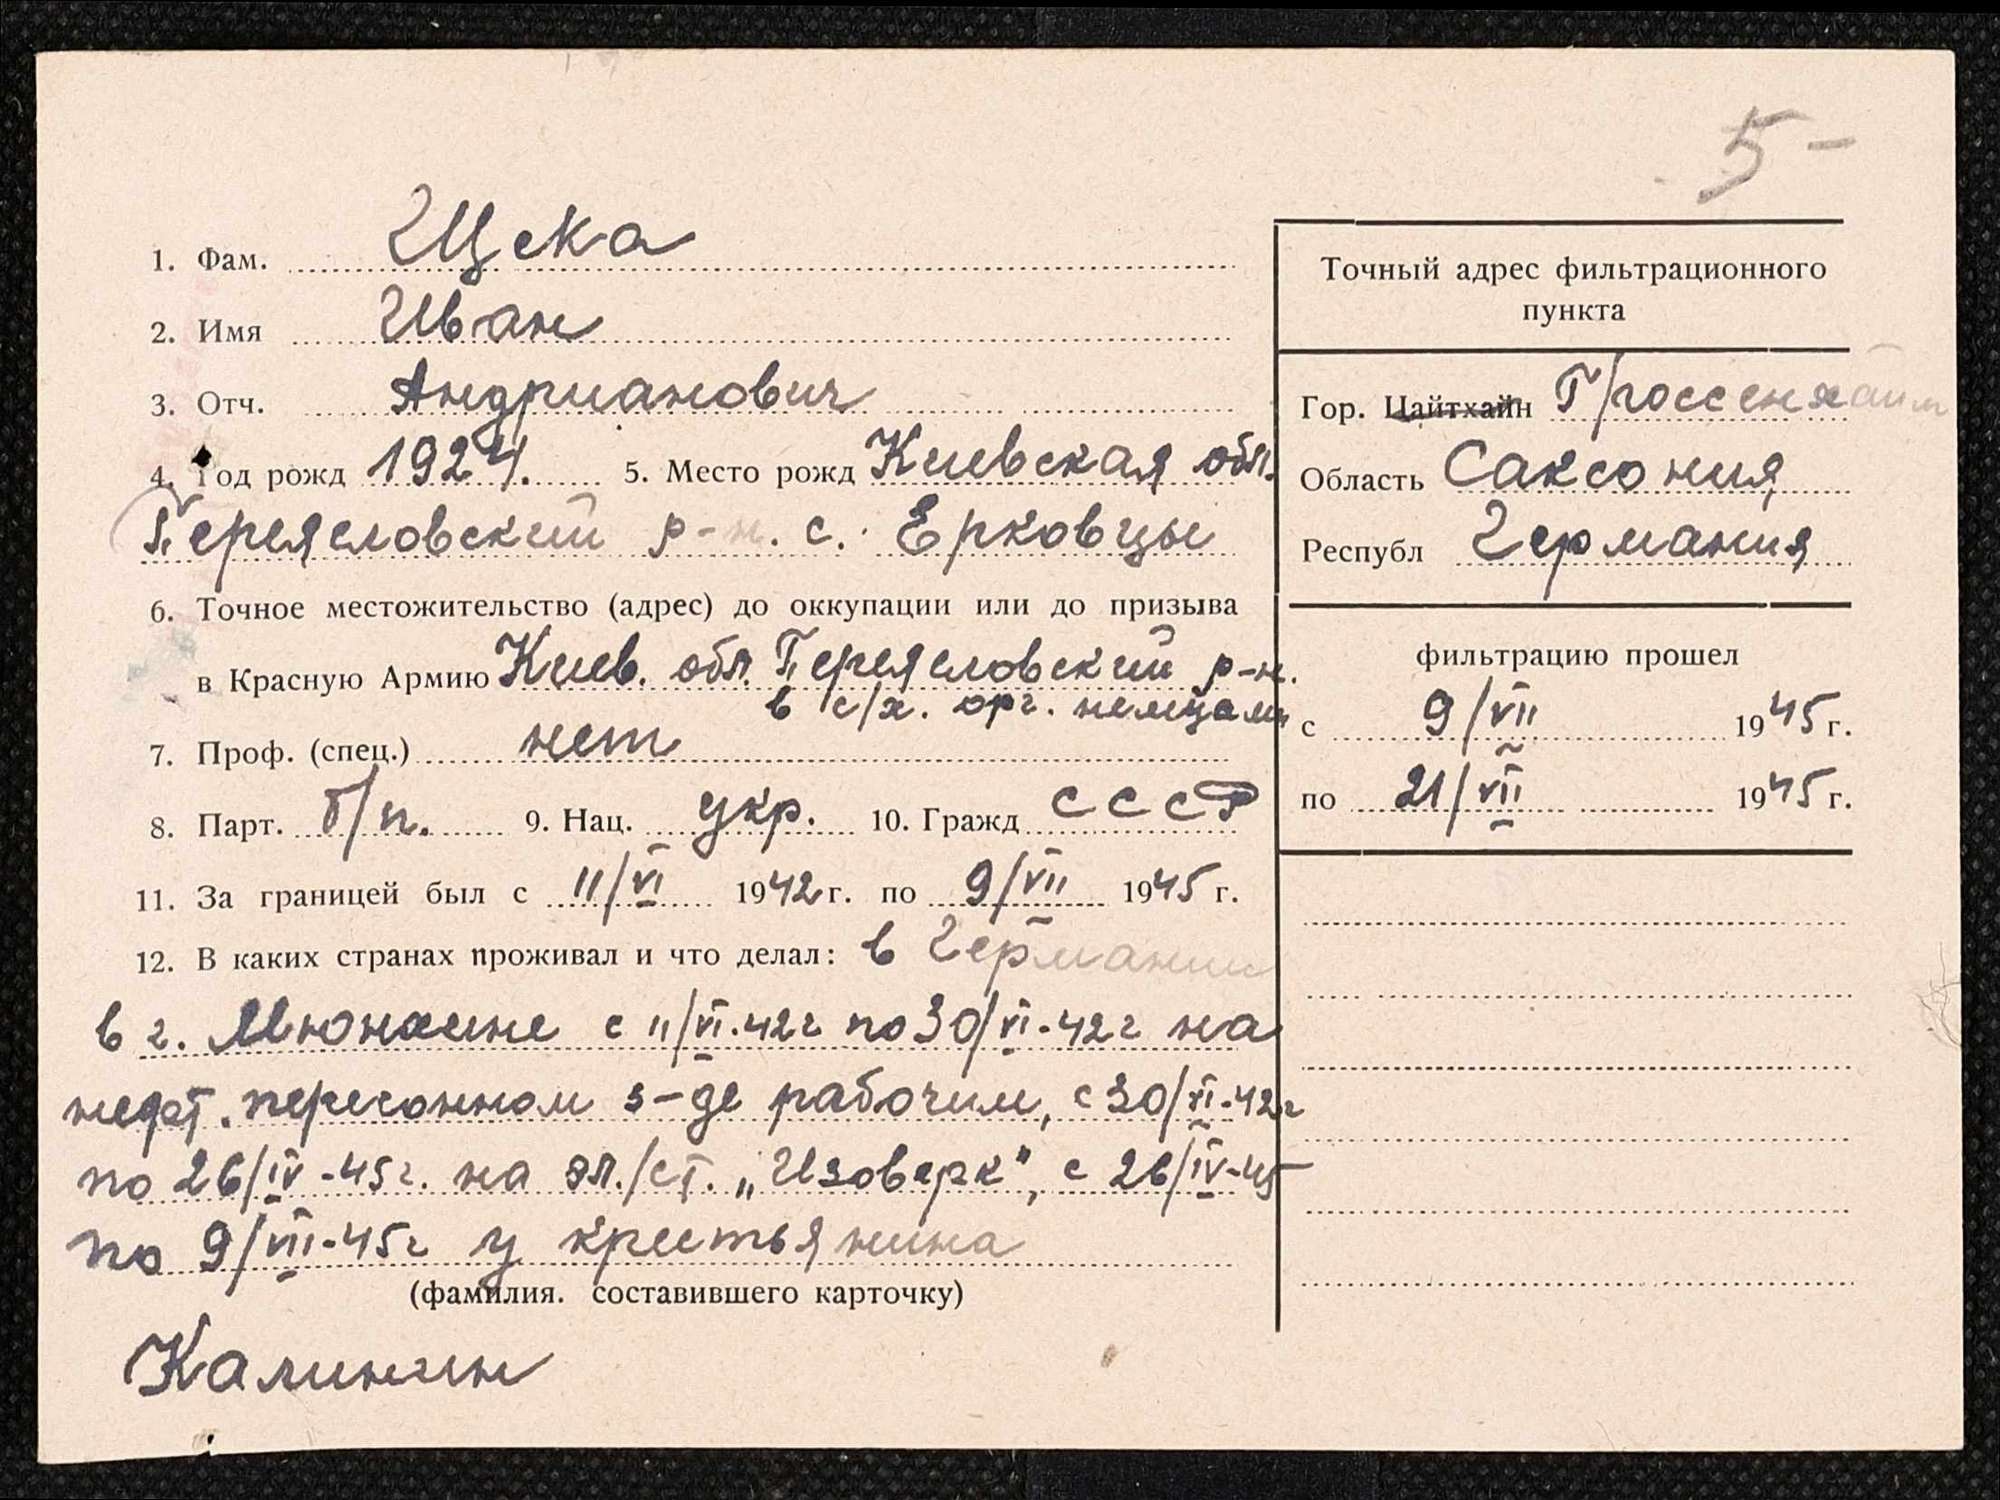 5-
1. Фам. Ицска
2. Имя Иван
3. Отч. Андрианович
4. Год рожд 1924. 5. Место рожд Киевская обл.
Переясловский р-н. с. Ерковцы
6. Точное местожительство (адрес) до оккупации или до призыва
в Красную Армию Киев. обл. Переясловский р-н.
в с/х. орг. немцами
7. Проф. (спец.) нет
8. Парт. б/п. 9. Нац. укр. 10. Гражд СССР
11. За границей был с 11/VI 1942 г. по 9/VII 1945 г.
12. В каких странах проживал и что делал: в Германии
в г. Мюнхине с 11/VI-42г по 30/VI-42г на
нефт. перегонном з-де рабочим, с 30/VI-42г
по 26/IV-45г. на эл./ст. „Изоверк", с 26/IV-45
по 9/VII-45г у крестьянина
(фамилия. составившего карточку)
Калинин
Точный адрес фильтрационного
пункта
Гор. Цайтхайн Г/россенхайм
Область Саксония
Республ Германия
фильтрацию прошел
с 9/VII 1945 г.
по 21/VII 1945 г.